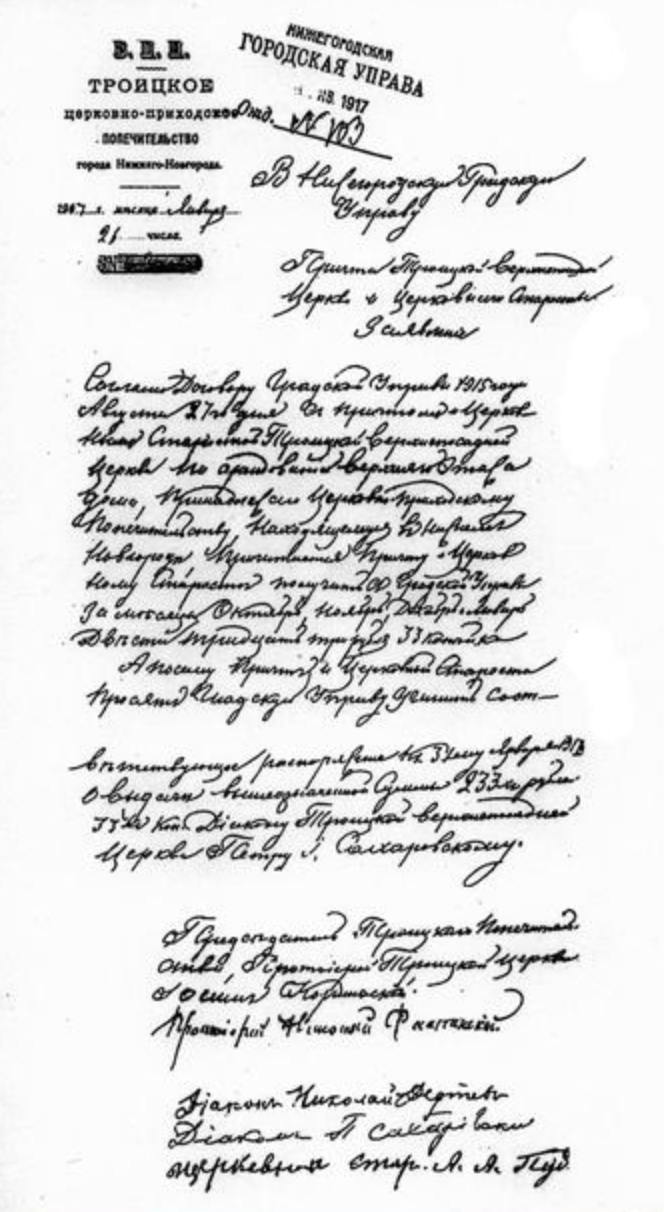 В. П. И.
ТРОИЦКОЕ
церковно-приходское
ПОПЕЧИТЕЛЬСТВО
города Нижняго-Новгорода.
1917 г. месяца Января
21 числа.
НИЖЕГОРОДСКАЯ
ГОРОДСКАЯ УПРАВА
ЯНВ. 1917
В Нижегородскую Градскую
Управу
Причта Троицкой Верхнепосадской
Церкви и Церковнаго Старосты
Заявление
Согласно Договору Градской Управы 1915 года
Августа 27го дня с причтом и Церков
ным Старостой Троицкой Верхнепосадской
Церкви по арендованию верхняго этажа
дома, принадлежащаго Церковно-приходскому
Попечительству, находящемуся в Нижнем
Новгороде причитается Причту и Церков
ному Старосте получить с Градской Управы
за месяцы Октябрь, Ноябрь, Декабрь и Январь
Двести тридцать три рубля 33 копейки
А посему Причт и Церковный Староста
просят Градскую Управу учинить соот-
ветствующее распоряжение
о выдаче вышеозначенной суммы 233 рубля
33 коп. Диакону Троицкой Верхнепосадской
Церкви Петру Сахаровскому.
Председатель Троицкаго Попечитель
ства, Протоіерей Троицкой церкви
Протоіерей
Діаконъ Николай
Діаконъ П Сахаровскій
церковный стар. А. А.